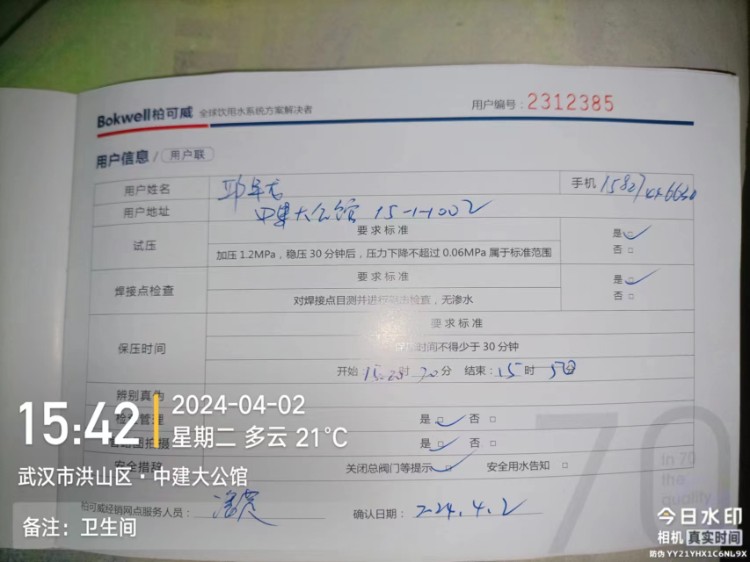 Bokwell柏可威 全球饮用水系统方案解决者 用户编号:2312385
用户信息 / 用户联
用户姓名 手机
用户地址 中建大公馆 15-1-1002
试压 要求标准 是□ 否□
加压1.2MPa,稳压30分钟后,压力下降不超过0.06MPa属于标准范围
焊接点检查 要求标准 是□ 否□
对焊接点目测并进行 检查,无渗水
保压时间 要求标准
时间不得少于30分钟
开始 时 分 结束:15时 50分
辨别真伪
管理 是□ 否□
是□ 否□
安全措辞 关闭总阀门等提示□ 安全用水告知□
柏可威经销网点服务人员: 确认日期:
70
in 70
the
quality
15:42 2024-04-02
星期二 多云 21℃
武汉市洪山区·中建大公馆
备注:卫生间
今日水印
相机 真实时间
防伪 YY21YHX1C6NL9X